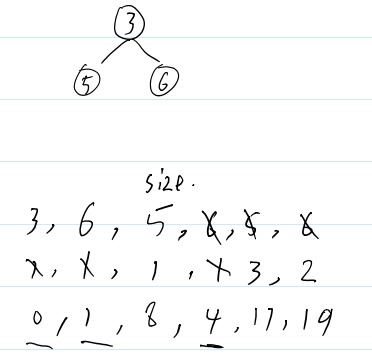 3
5 6
size.
3, 6, 5, 6, 5, 6
1, 1, 1, 1 3, 2
0, 1, 8, 4, 17, 19